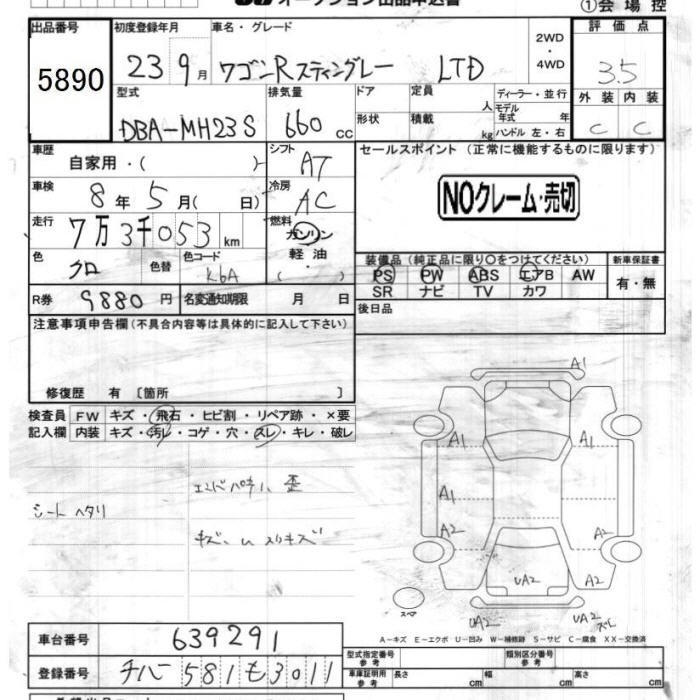 オークション出品申込書
①会場控
出品番号 初度登録年月 車名・グレード 2WD・4WD 評価点
5890 23 9月 ワゴンRスティングレー LTD 3.5
型式 排気量 ドア 定員 人 ディーラー・並行 外装 内装
DBA-MH23S 660cc 形状 積載 kg モデル年式 年 ハンドル 左・右 C C
車歴 自家用・( ) シフト AT セールスポイント(正常に機能するものに限ります)
車検 8年5月( 日) 冷房 AC NOクレーム・売切
走行 7万3千053km 燃料 ガソリン・軽油・( )
色 クロ 色替 色コード K6A
装備品(純正品に限り○をつけてください) 新車保証書
PS PW ABS エアB AW 有・無
SR ナビ TV カワ
R券 9880円 名変通知期限 月 日 後日品
注意事項申告欄(不具合内容等は具体的に記入して下さい)
修復歴 有 〔箇所 〕
検査員 FW キズ・飛石・ヒビ割・リペア跡・×要
記入欄 内装 キズ・汚レ・コゲ・穴・スレ・キレ・破レ
シート ヘタリ
キズ、凹 スリキズ
A1
A1 A1
A1
A2 A2
UA2 A2
UA2 UA2
スペア
A-キズ E-エクボ U-凹み W-補修跡 S-サビ C-腐食 XX-交換済
車台番号 639291
登録番号 チバ 581 も 3011
型式指定番号 参考 類別区分番号 参考
車庫証明用 参考 長さ cm 幅 cm 高さ cm